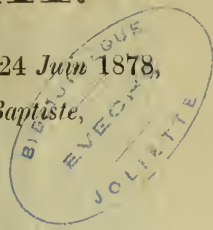 24 Juin 1878,
Baptiste,
BIBLIOTHEQUE
EVECHE
JOLIETTE